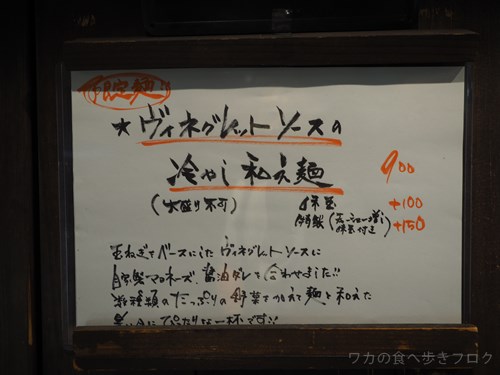 限定麺!!
★ ヴィネグレットソースの
冷やし和え麺 900
(大盛り不可) 味玉 +100
特製(チャーシュー増し 味玉付き) +150
玉ねぎをベースにした ヴィネグレットソースに
自家製マヨネーズ、醤油ダレを合わせました!!
数種類のたっぷりの野菜を加えて麺と和えた
暑い日にぴったりな一杯です!!
ワカの食べ歩きブログ